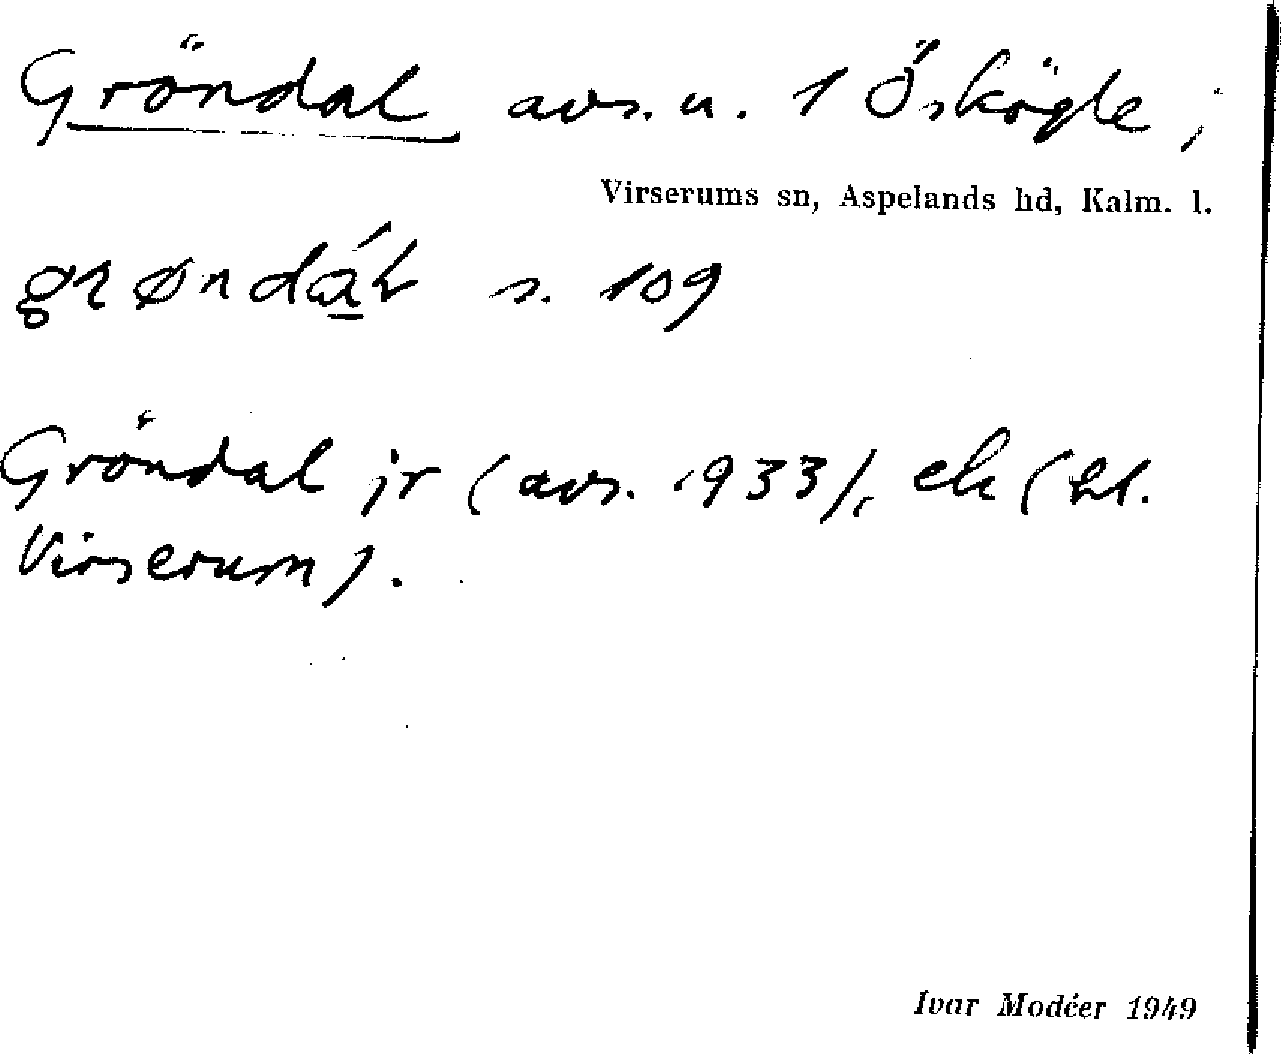 Gröndal avs. u. 1 Ö, skögle ;
Virserums sn, Aspelands hd, Kalm. l.
grøndál s. 109
Gröndal jr (avs. 1933), ek (bl.
Virserum).
Ivar Modéer 1949